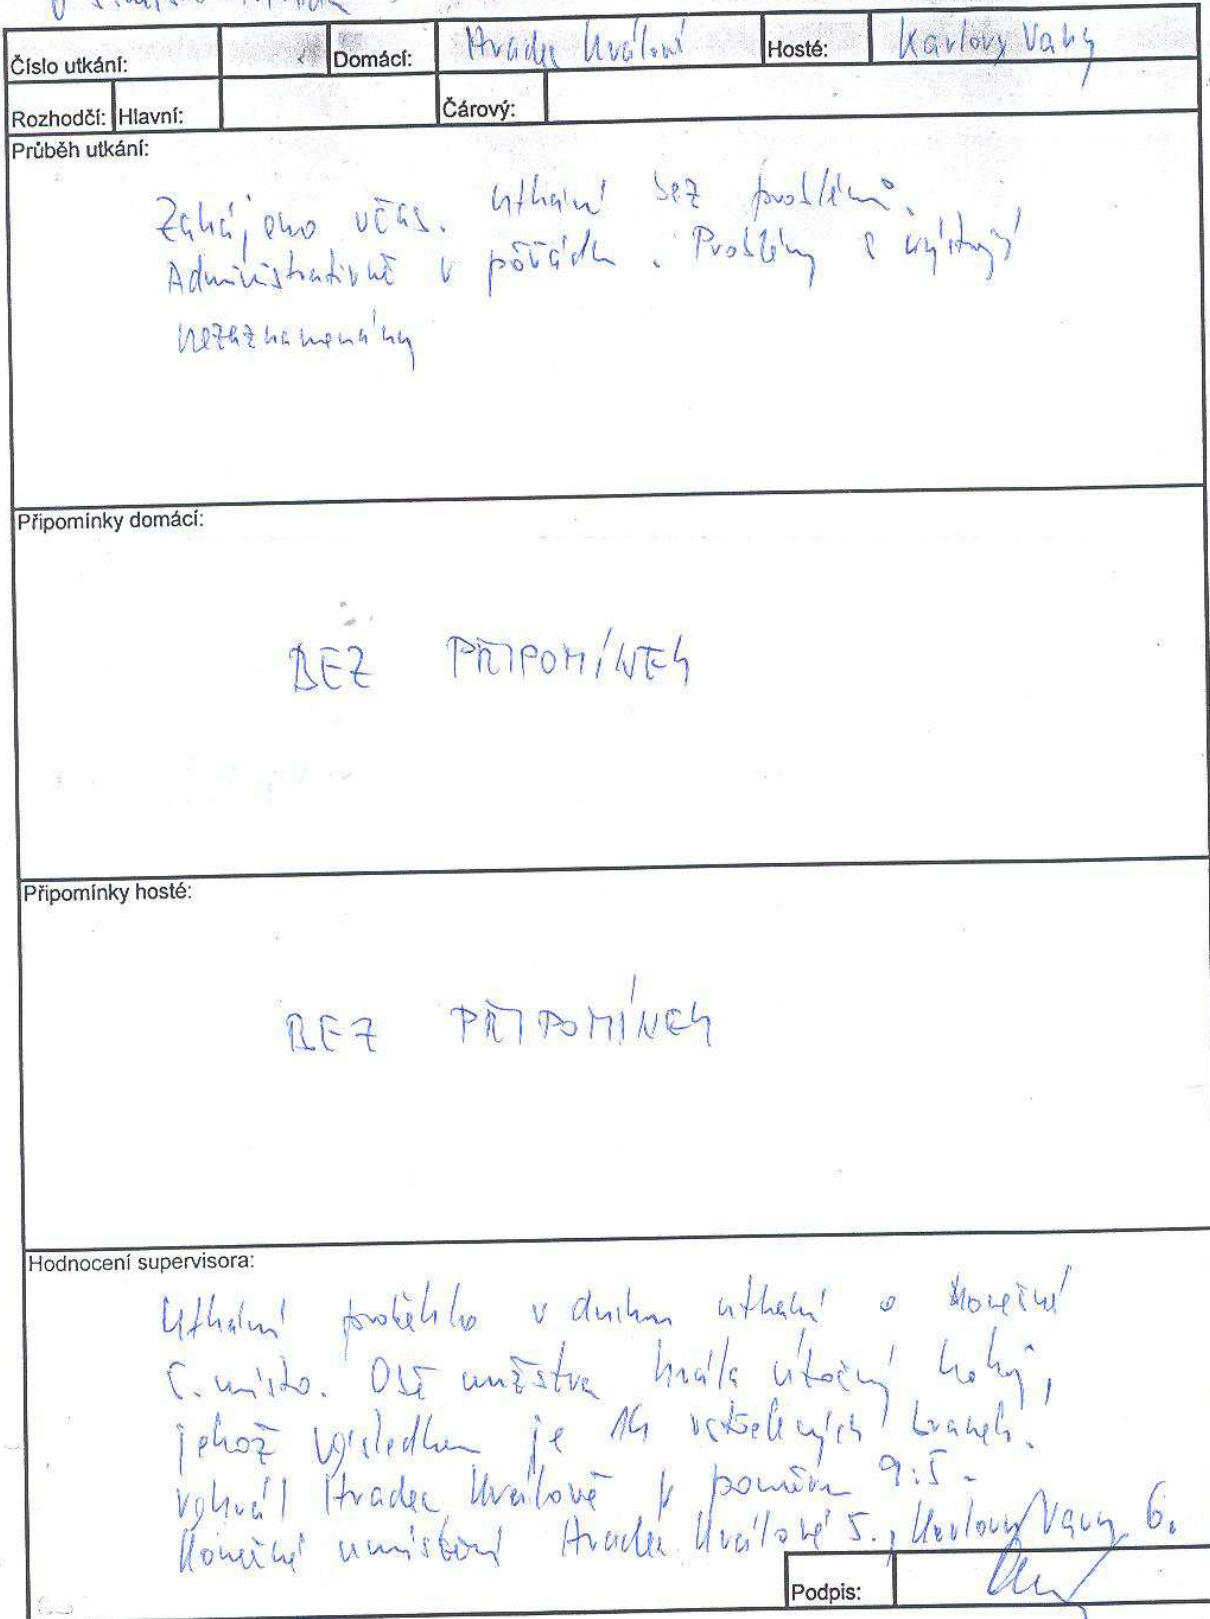 Číslo utkání: Domácí: Hradec Králové Hosté: Karlovy Vary
Rozhodčí: Hlavní: Čárový:
Průběh utkání:
Zahájeno včas. Utkání bez problémů.
Administrativně v pořádku. Problémy s výstrojí
nezaznamenány
Připomínky domácí:
BEZ PŘIPOMÍNEK
Připomínky hosté:
BEZ PŘIPOMÍNEK
Hodnocení supervisora:
Utkání proběhlo v duchu utkání o konečné
5. místo. Obě mužstva hrála útočný hokej,
jehož výsledkem je 14 vstřelených branek.
Vyhrál Hradec Králové v poměru 9:5.
Konečné umístění Hradec Králové 5., Karlovy Vary 6.
Podpis: